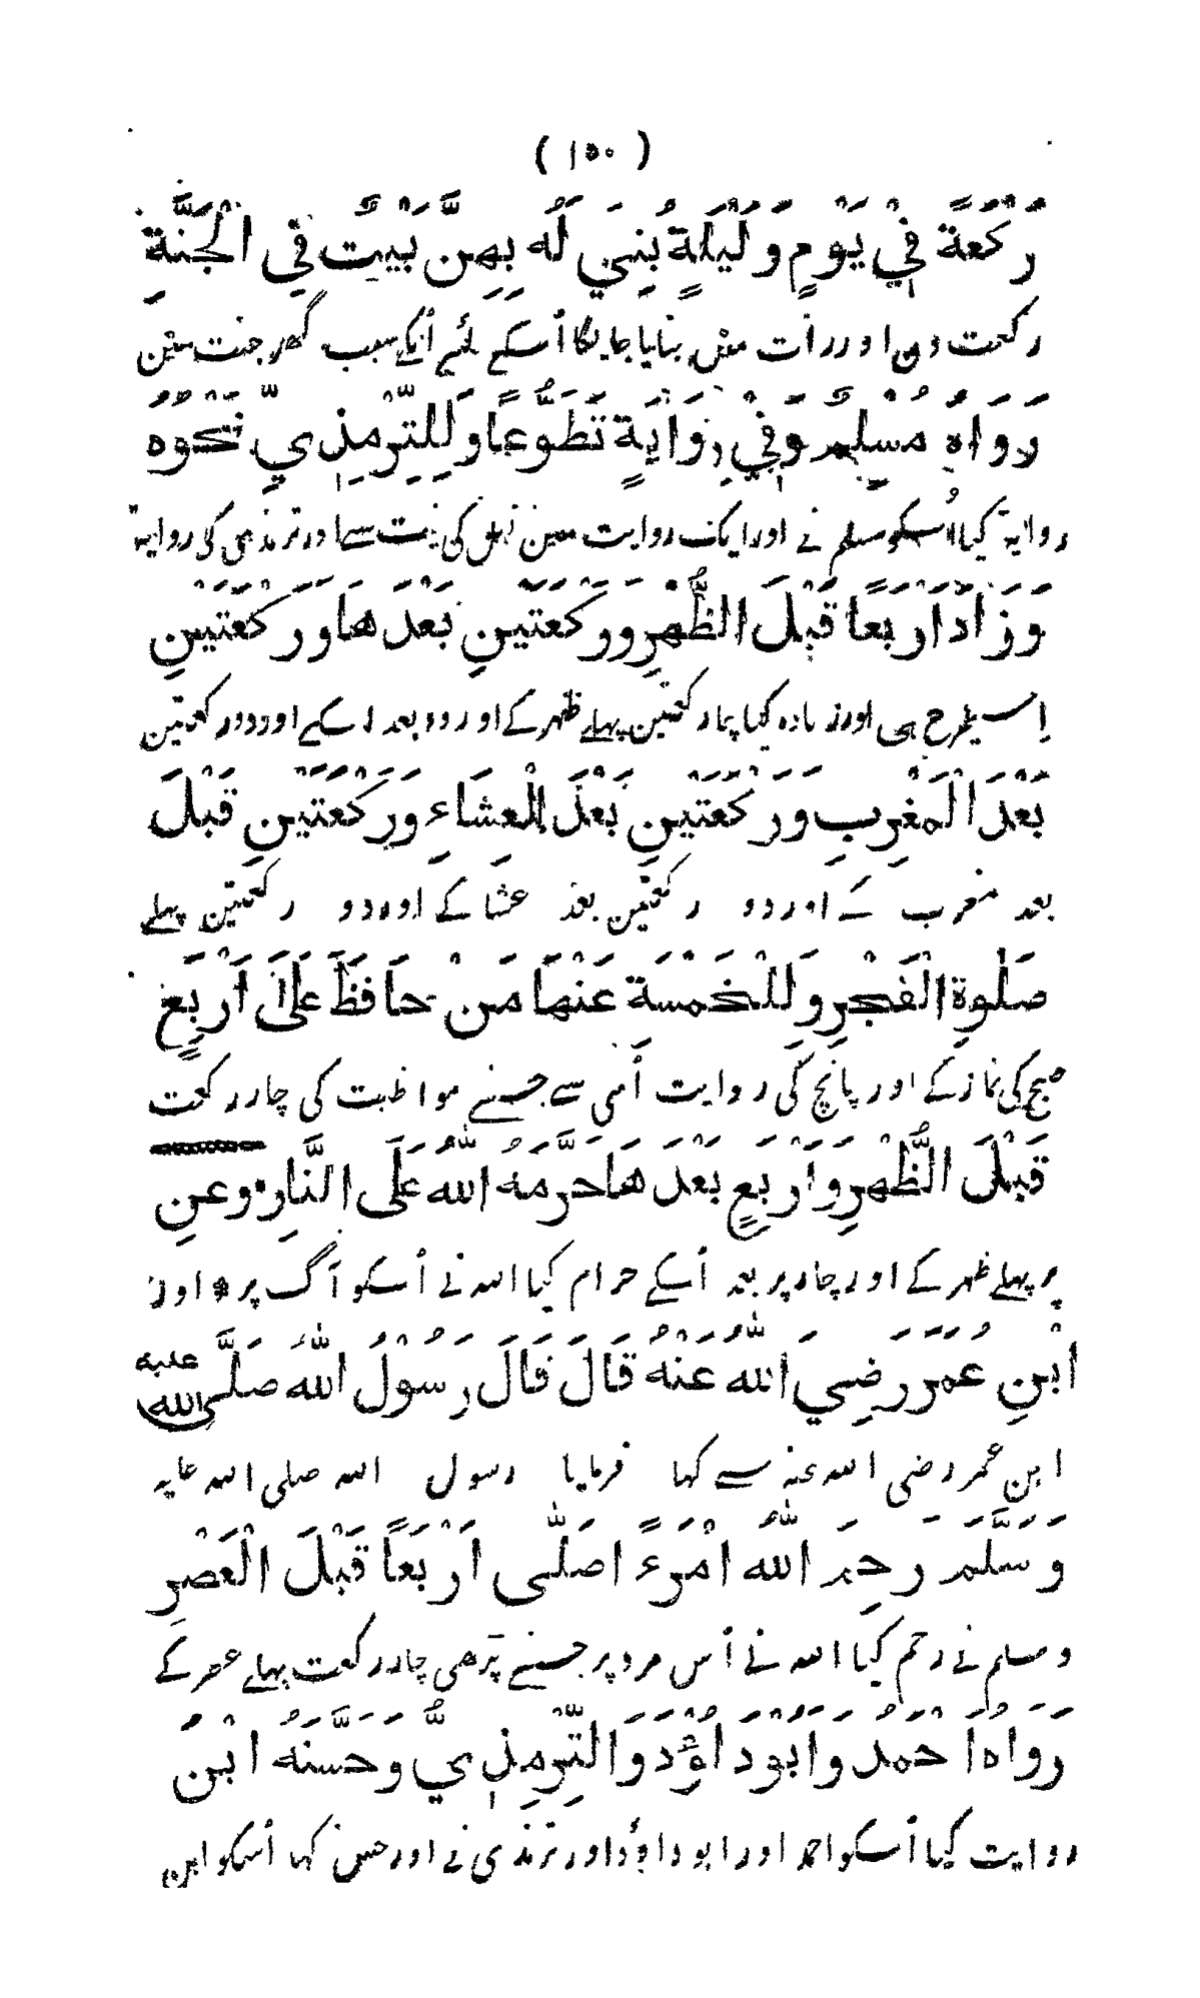 ( ١٥٠ )
رَكْعَةً فِي يَوْمٍ وَلَيْلَةٍ بُنِيَ لَهُ بِهِنَّ بَيْتٌ فِي الْجَنَّةِ
رکعت دن اور رات میں بنایا جایگا اُسکے لئے اُنکے سبب گھر جنت مین
رَوَاهُ مُسْلِمٌ وَفِي رِوَايَةٍ تَطَوُّعًا وَلِلتِّرْمِذِيِّ نَحْوُهُ
روایۃ کیا اُسکو مسلم نے اور ایک روایت مین نفل کی نیت سے اور ترمذی کی روایۃ
وَزَادَ أَرْبَعًا قَبْلَ الظُّهْرِ وَرَكْعَتَيْنِ بَعْدَهَا وَرَكْعَتَيْنِ
اِسیطرح ہی اور زیادہ کیا چار رکعتین پہلے ظہر کے اور دو بعد اسکے اور دو رکعتین
بَعْدَ الْمَغْرِبِ وَرَكْعَتَيْنِ بَعْدَ الْعِشَاءِ وَرَكْعَتَيْنِ قَبْلَ
بعد مغرب کے اور دو رکعتین بعد عشا کے اور دو رکعتین پہلے
صَلٰوةِ الْفَجْرِ وَلِلْخَمْسَةِ عَنْهَا مَنْ حَافَظَ عَلَى أَرْبَعٍ
صبح کی نماز کے اور پانچ کی روایت اُسی سے جسنے مواظبت کی چار رکعت
قَبْلَ الظُّهْرِ وَأَرْبَعٍ بَعْدَهَا حَرَّمَهُ اللّٰهُ عَلَى النَّارِ * وَعَنِ
پر پہلے ظہر کے اور چار پر بعد اُسکے حرام کیا اللہ نے اُسکو آگ پر * اور
ابْنِ عُمَرَ رَضِيَ اللّٰهُ عَنْهُ قَالَ قَالَ رَسُوْلُ اللّٰهِ صَلَّى اللّٰه عليه
ابن عمر رضی اللہ عنہ سے کہا فرمایا رسول اللہ صلی اللہ علیہ
وَسَلَّمَ رَحِمَ اللّٰهُ امْرَءً اصَلّٰى أَرْبَعًا قَبْلَ الْعَصْرِ
وسلم نے رحم کیا اللہ نے اُس مرد پر جسنے پڑھی چار رکعت پہلے عصر کے
رَوَاهُ أَحْمَدُ وَأَبُوْدَاؤُدَ وَالتِّرْمِذِيُّ وَحَسَّنَهُ ابْنُ
روایت کیا اُسکو احمد اور ابو داؤد اور ترمذی نے اور حسن کہا اُسکو ابن